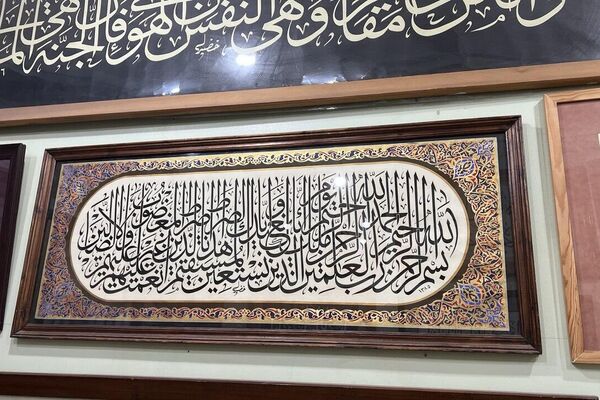 مقا ونهى النفس عن الهوى فإن الجنة هي الم
بسم الله الرحمن الرحيم الحمد لله رب العلمين الرحمن الرحيم ملك يوم الدين إياك نعبد وإياك نستعين اهدنا الصراط المستقيم صراط الذين أنعمت عليهم غير المغضوب عليهم ولا الضالين